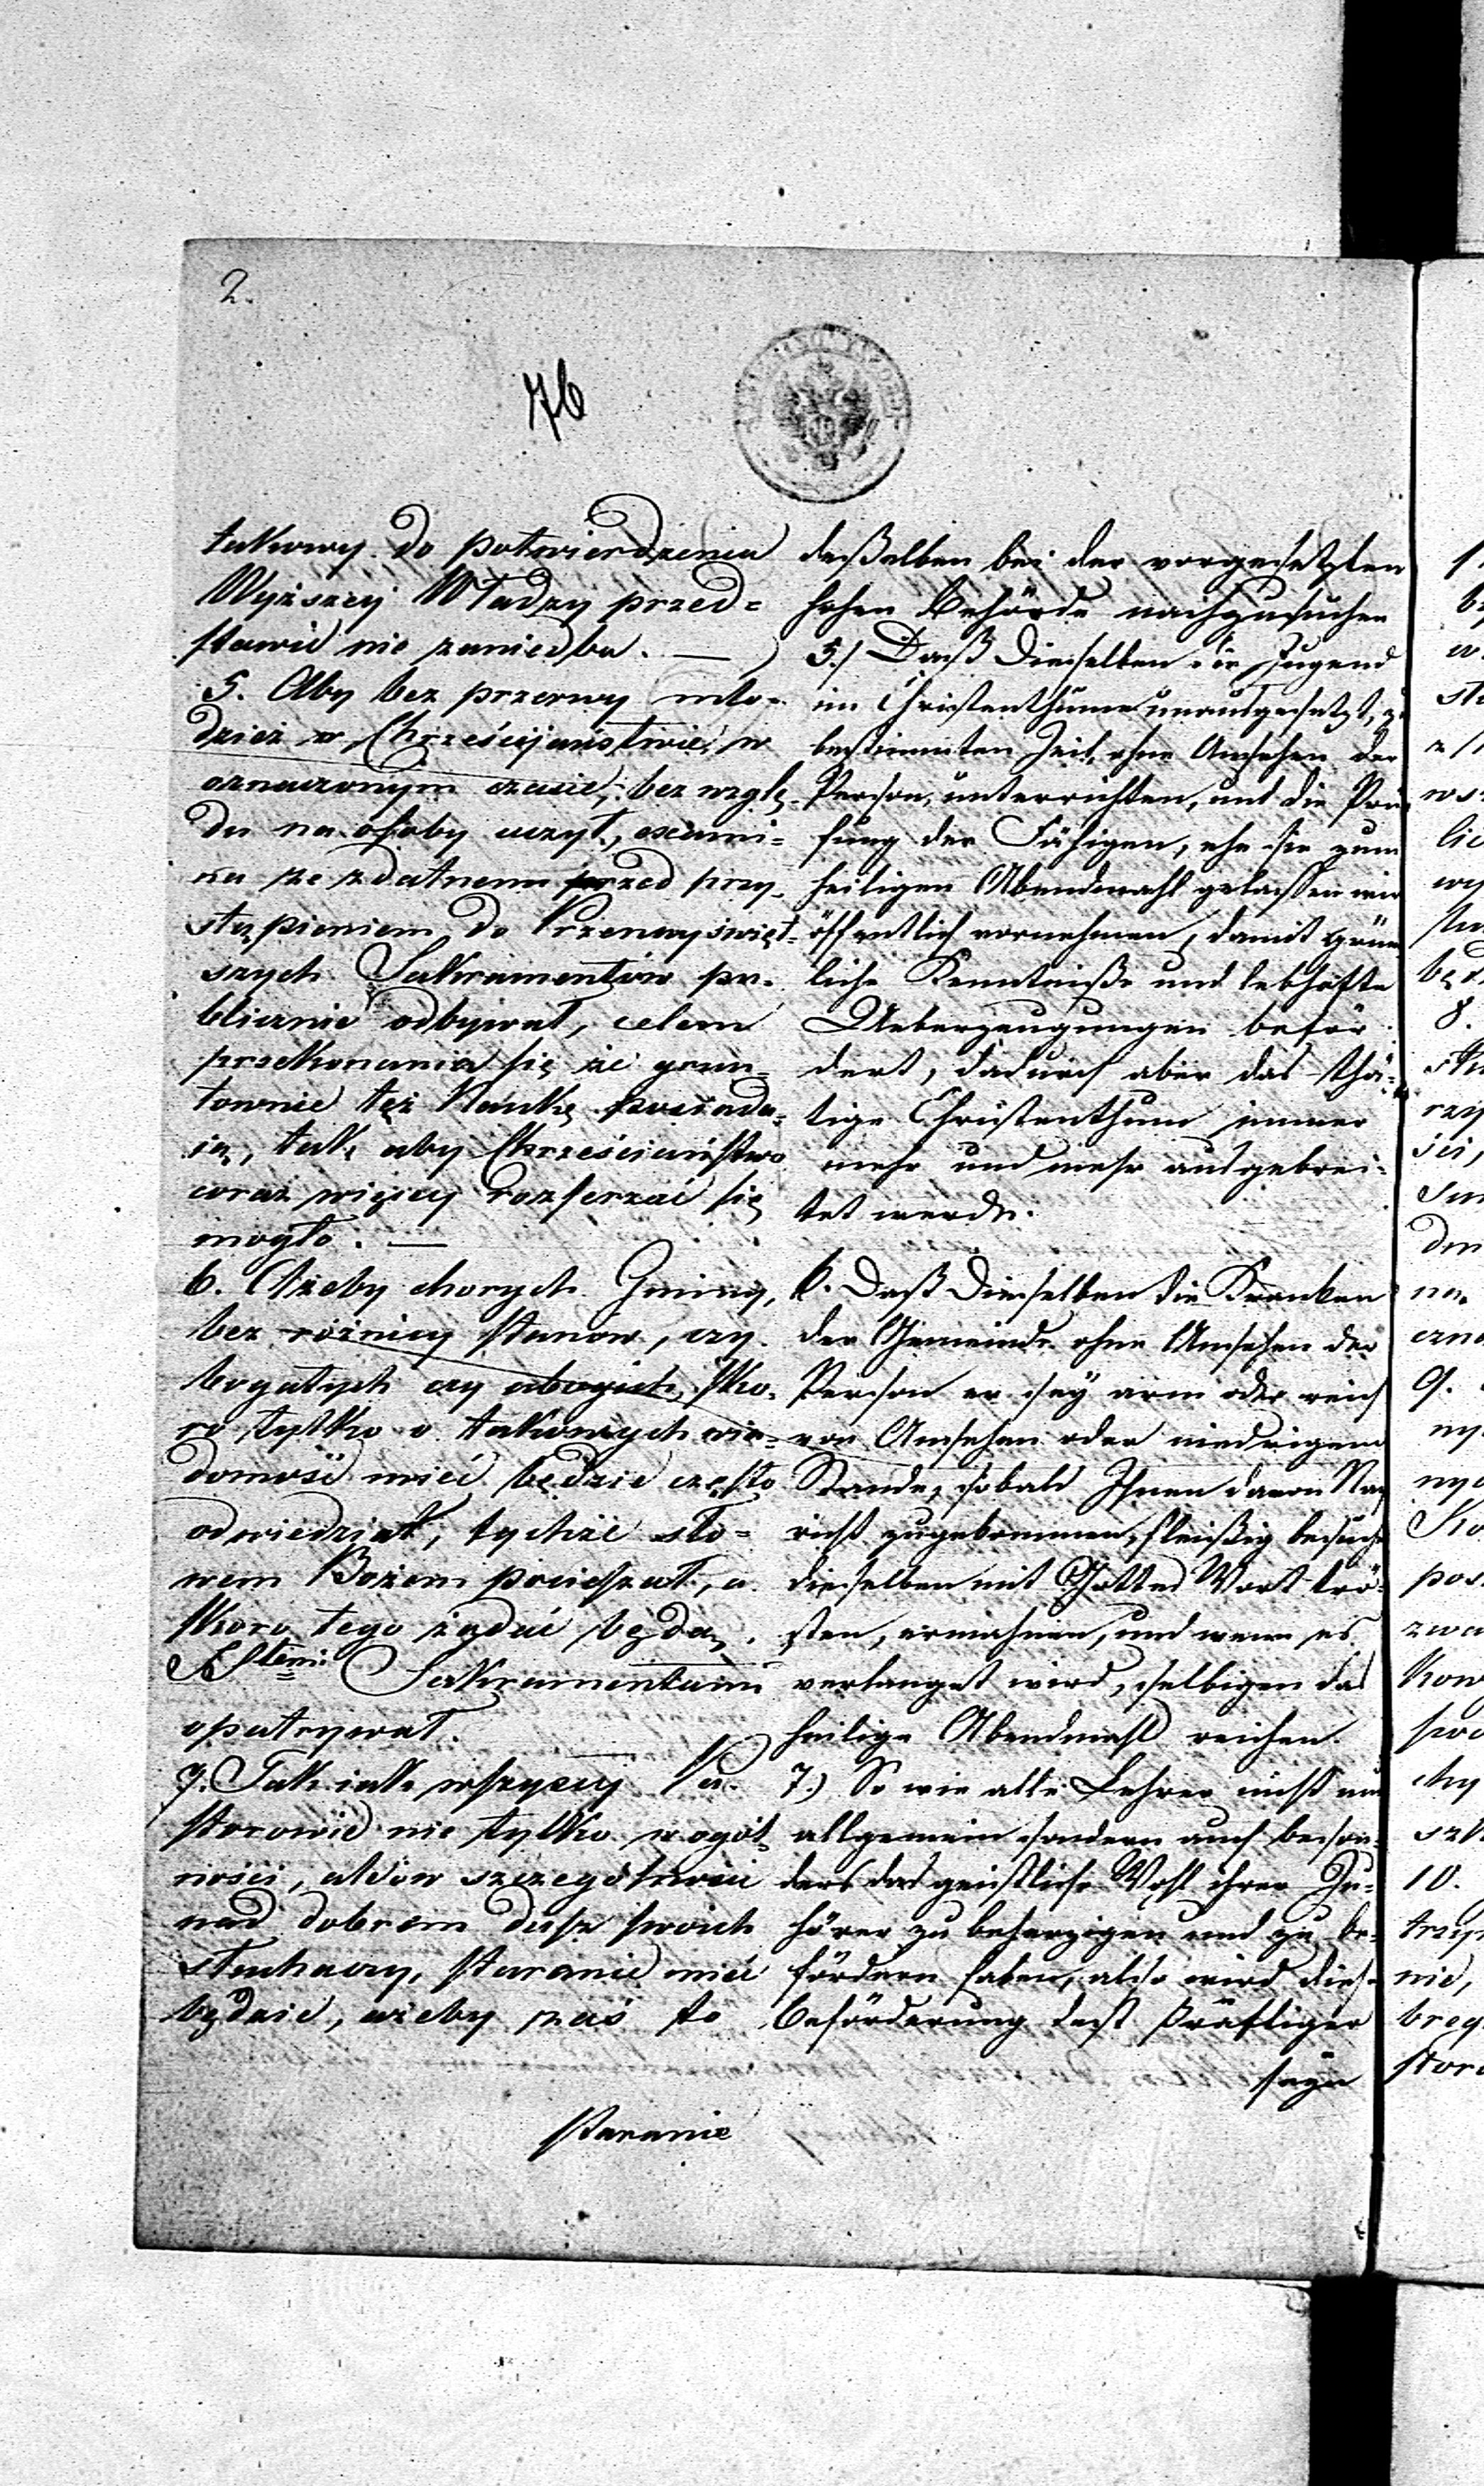 2.
76
takowy do potwierdzenia
Wyższey Władzy przed=
stawić nie zaniedba. —
5. Aby bez przerwy mło-
dzież w Chrześcijaństwie, w
oznaczonym czasie, bez wzglę-
du na osoby uczył, exami=
na ze zdatnemi przed przy-
stąpieniem do Przenayświęt=
szych Sakramentów pu-
blicznie odbywał, celem
przekonania się że grun-
townie też Naukę posiada-
ią, tak, aby Chrześciaństwo
coraz więcey rozszerzać się
mogło. —
6. Ażeby chorych Gminy,
bez różnicy stanow, czy
bogatych czy ubogich, sko-
ro tylko o takowych wia=
domość mieć będzie często
odwiedzał, tychże sło=
wem Bożem pocieszał, a
skoro tego żądać będą,
SStemi Sakramentami
opatrywał.
7. Tak iak wszyscy Pa-
storowie nie tylko w ogól-
ności, ale w szczególności
nad dobrem dusz swoich
słuchaczy, staranie mieć
będzie, ażeby zaś to
staranie
deßelben bei der vorgesetzten
hohen Behörde nachzusuchen
5./ Daß Dieselben die Jugend
im Christenthume unausgesetzt, zu
bestimmten Zeit, ohne Ansehen der
Person, unterrichten, und die Prü-
fung der Fähigen, ehe sie zum
heiligen Abendmahl gelassen wird
öffentlich vornehmen, damit gründ
liche Kenntniße und lebhafte
Ueberzeugungen beför-
dert, dadurch aber das thä-
tige Christenthum immer
mehr und mehr ausgebrei-
tet werde.
6. Daß Dieselben die Kranken
der Gemeinde ohne Ansehen der
Person er sey arm oder reich
von Ansehen oder niedrigem
Stande, sobald Ihnen davon Nach
richt zugekommen, fleißig besuchen
dieselben mit Gottes Wort trö-
sten, ermahnen, und wenn es
verlanget wird, selbigen das
heilige Abendmahl reichen.
7.) So wie alle Lehrer nicht nur
allgemein sondern auch beson-
ders das geistliche Wohl ihrer Zu-
hörer zu beherzigen und zu be-
fördern haben, also wird diese
Beförderung desto kräftiger
seyn